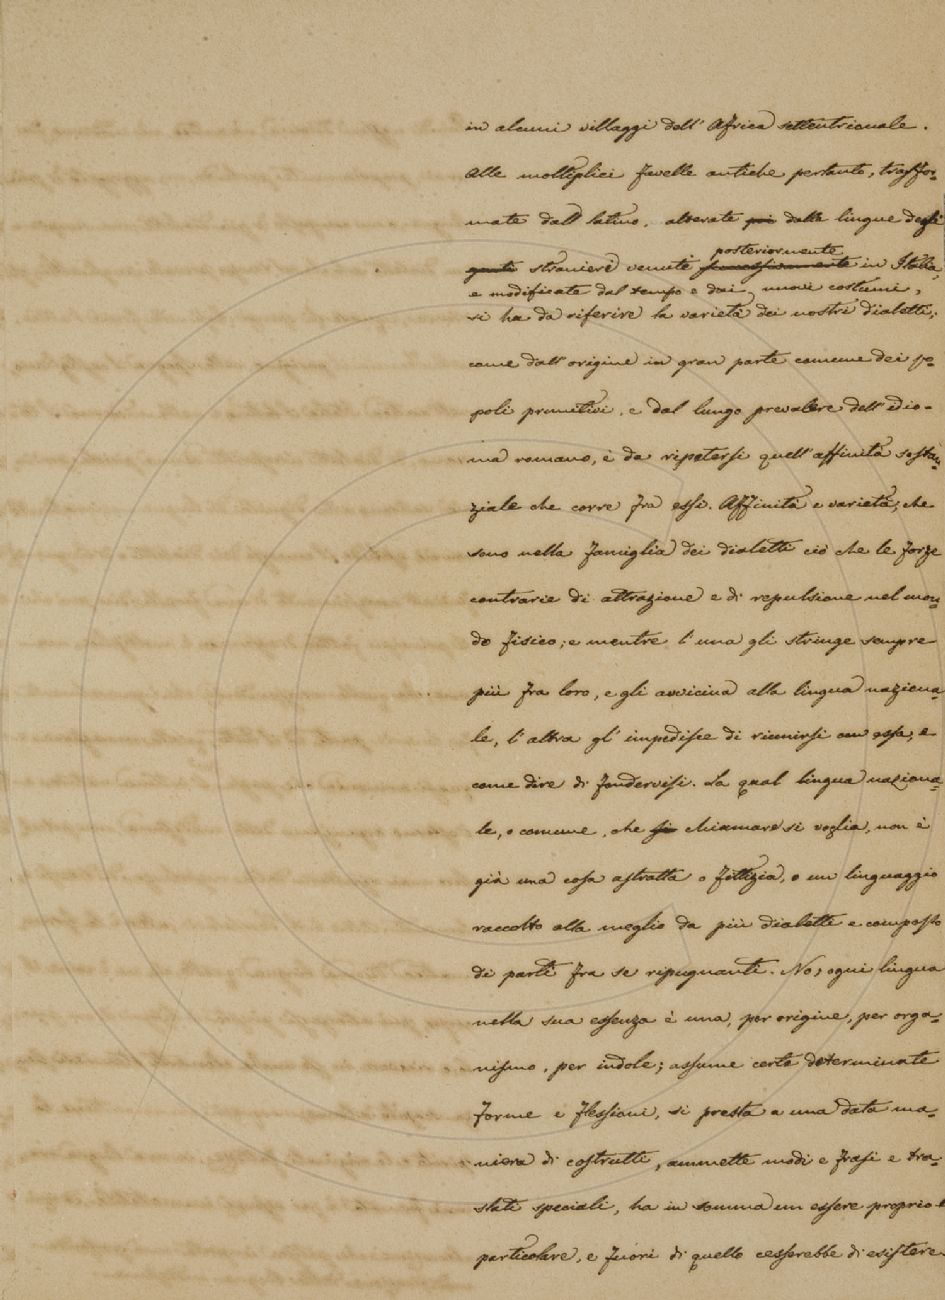 in alcuni villaggi dell' Africa settentrionale.
Alle molteplici favelle antiche pertanto, trasfor=
mate dal latino, alterate poi dalle lingue degli
genti stranieri venute posteriormente in Italia,
e modificate dal tempo e dai nuovi costumi,
si ha da riferire la varietà dei nostri dialetti;
come dall' origine in gran parte comune dei po=
poli primitivi, e dal lungo prevalere dell' idio=
ma romano, è da ripetersi quell' affinità sostan=
ziale che corre fra essi. Affinità e varietà, che
sono nella famiglia dei dialetti ciò che le forze
contrarie di attrazione e di repulsione nel mon=
do fisico; e mentre l' una gli stringe sempre
più fra loro, e gli avvicina alla lingua naziona=
le, l' altra gl' impedisce di riunirsi con essa, e
come dire di fondervisi. La qual lingua naziona=
le, o comune, che si chiamare si voglia, non è
già una cosa astratta o fittizia, o un linguaggio
raccolto alla meglio da più dialetti e composto
di parti fra se ripugnanti. No, ogni lingua
nella sua essenza è una, per origine, per orga=
nismo, per indole; assume certe determinate
forme e flessioni, si presta a una data ma=
niera di costrutti, ammette modi e frasi e tra=
slati speciali, ha in somma un essere proprio e
particolare, e fuori di quello cesserebbe di esistere.